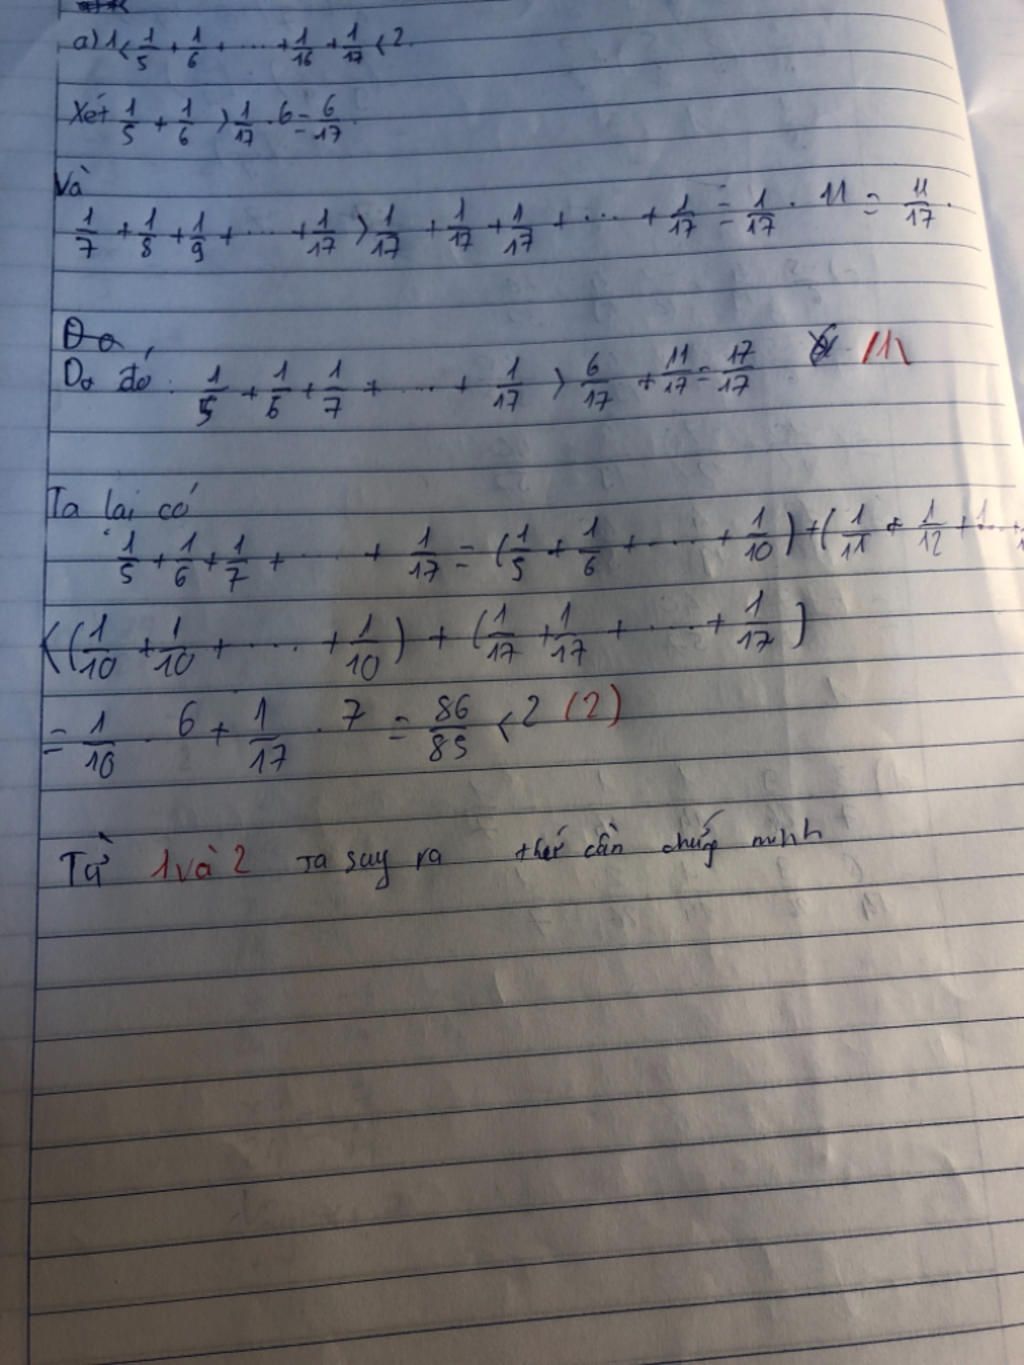 a) 1 < 1/5 + 1/6 + .... + 1/16 + 1/17 < 2.
Xét 1/5 + 1/6 > 1/17 . 6 = 6/17.
Và
1/7 + 1/8 + 1/9 + .... + 1/17 > 1/17 + 1/17 + 1/17 + .... + 1/17 = 1/17 . 11 = 11/17.
Do đó : 1/5 + 1/6 + 1/7 + .... + 1/17 > 6/17 + 11/17 = 17/17 (1)
Ta lại có
1/5 + 1/6 + 1/7 + .... + 1/17 = (1/5 + 1/6 + .... + 1/10) + (1/11 + 1/12 + 1
< (1/10 + 1/10 + .... + 1/10) + (1/17 + 1/17 + .... + 1/17)
= 1/10 . 6 + 1/17 . 7 = 86/85 < 2 (2)
Từ 1 và 2 ta suy ra cần chứng minh